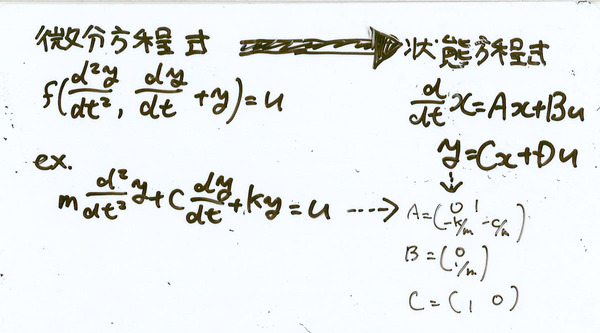 微分方程式 → 状態方程式
f(d²y/dt², dy/dt + y) = u
d/dt x = Ax + Bu
y = Cx + Du
ex.
m d²/dt² y + C dy/dt + ky = u ⇢ A = (0 1 -k/m -c/m)
B = (0 1/m)
C = (1 0)